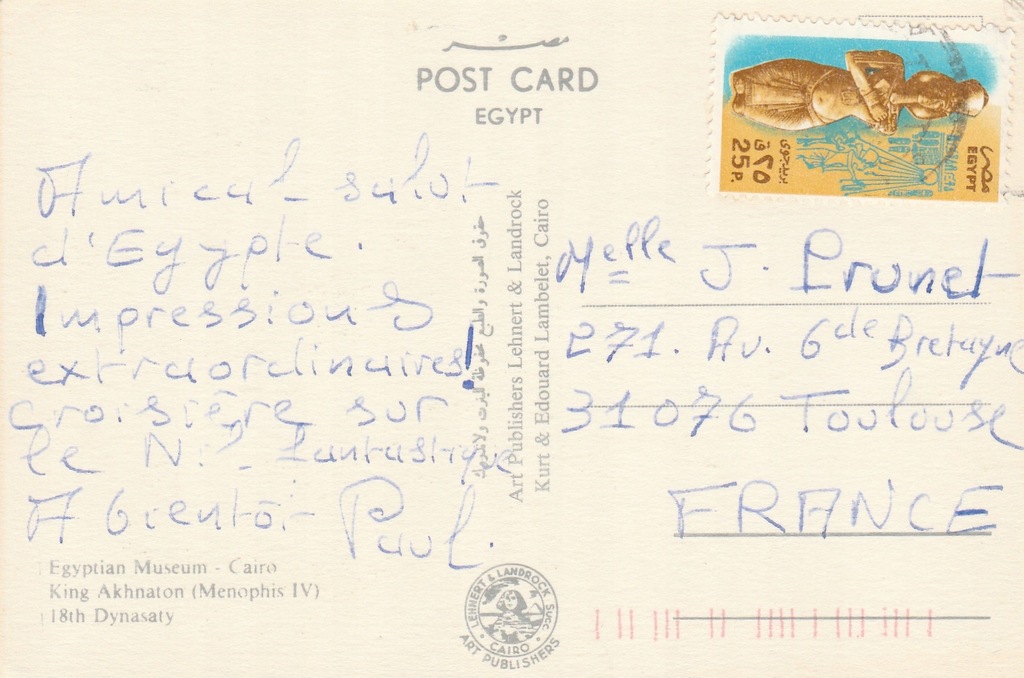 مصر
POST CARD
EGYPT
Amical salut
d'Egypte.
Impressions
extraordinaires!
croisière sur
le Nil fantastique
A bientôt
Paul.
Egyptian Museum - Cairo
King Akhnaton (Menophis IV)
18th Dynasaty
حقوق الصورة والطبع محفوظة للينرت ولاندروك
Art Publishers Lehnert & Landrock
Kurt & Edouard Lambelet, Cairo
LEHNERT & LANDROCK SUCC.
CAIRO
ART PUBLISHERS
مصر
EGYPT
بريد جوى
٢٥ ق
25 P.
Melle J. Prunet
271. Av. Gde Bretagne
31076 Toulouse
FRANCE